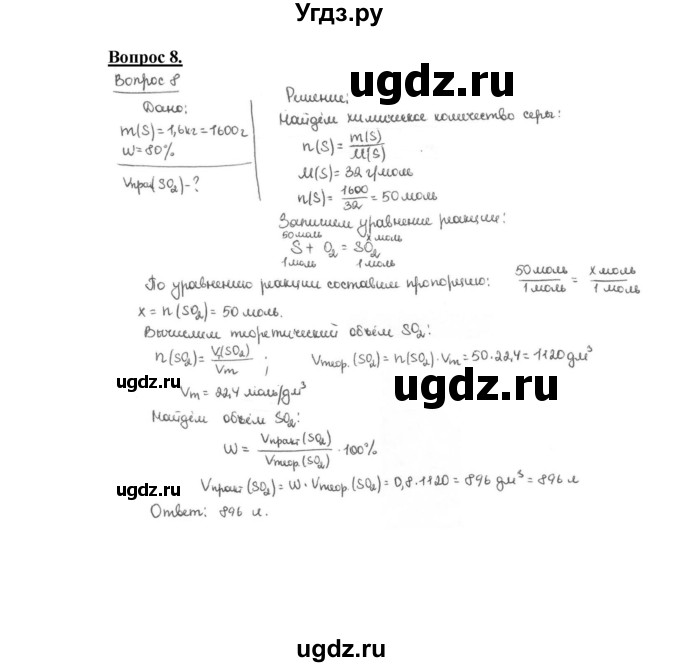 Угдз.ру
Вопрос 8.
Вопрос 8
Дано:
m(S) = 1,6кг = 1600г
W = 80%
Vпрак(SO₂) - ?
Решение:
Найдём химическое количество серы:
n(S) = m(S)/M(S)
M(S) = 32 г/моль
n(S) = 1600/32 = 50 моль
Запишем уравнение реакции:
50 моль x моль
S + O₂ = SO₂
1 моль 1 моль
По уравнению реакции составим пропорцию: 50 моль/1 моль = x моль/1 моль
x = n(SO₂) = 50 моль.
Вычислим теоретический объём SO₂:
n(SO₂) = V(SO₂)/Vm ; Vтеор.(SO₂) = n(SO₂)·Vm = 50·22,4 = 1120 дм³
Vm = 22,4 моль/дм³
Найдём объём SO₂:
W = Vпракт(SO₂)/Vтеор.(SO₂) · 100%
Vпракт(SO₂) = W·Vтеор.(SO₂) = 0,8·1120 = 896 дм³ = 896 л
Ответ: 896 л.
ugdz.ru
ugdz.ru
ugdz.ru
ugdz.ru
ugdz.ru
ugdz.ru